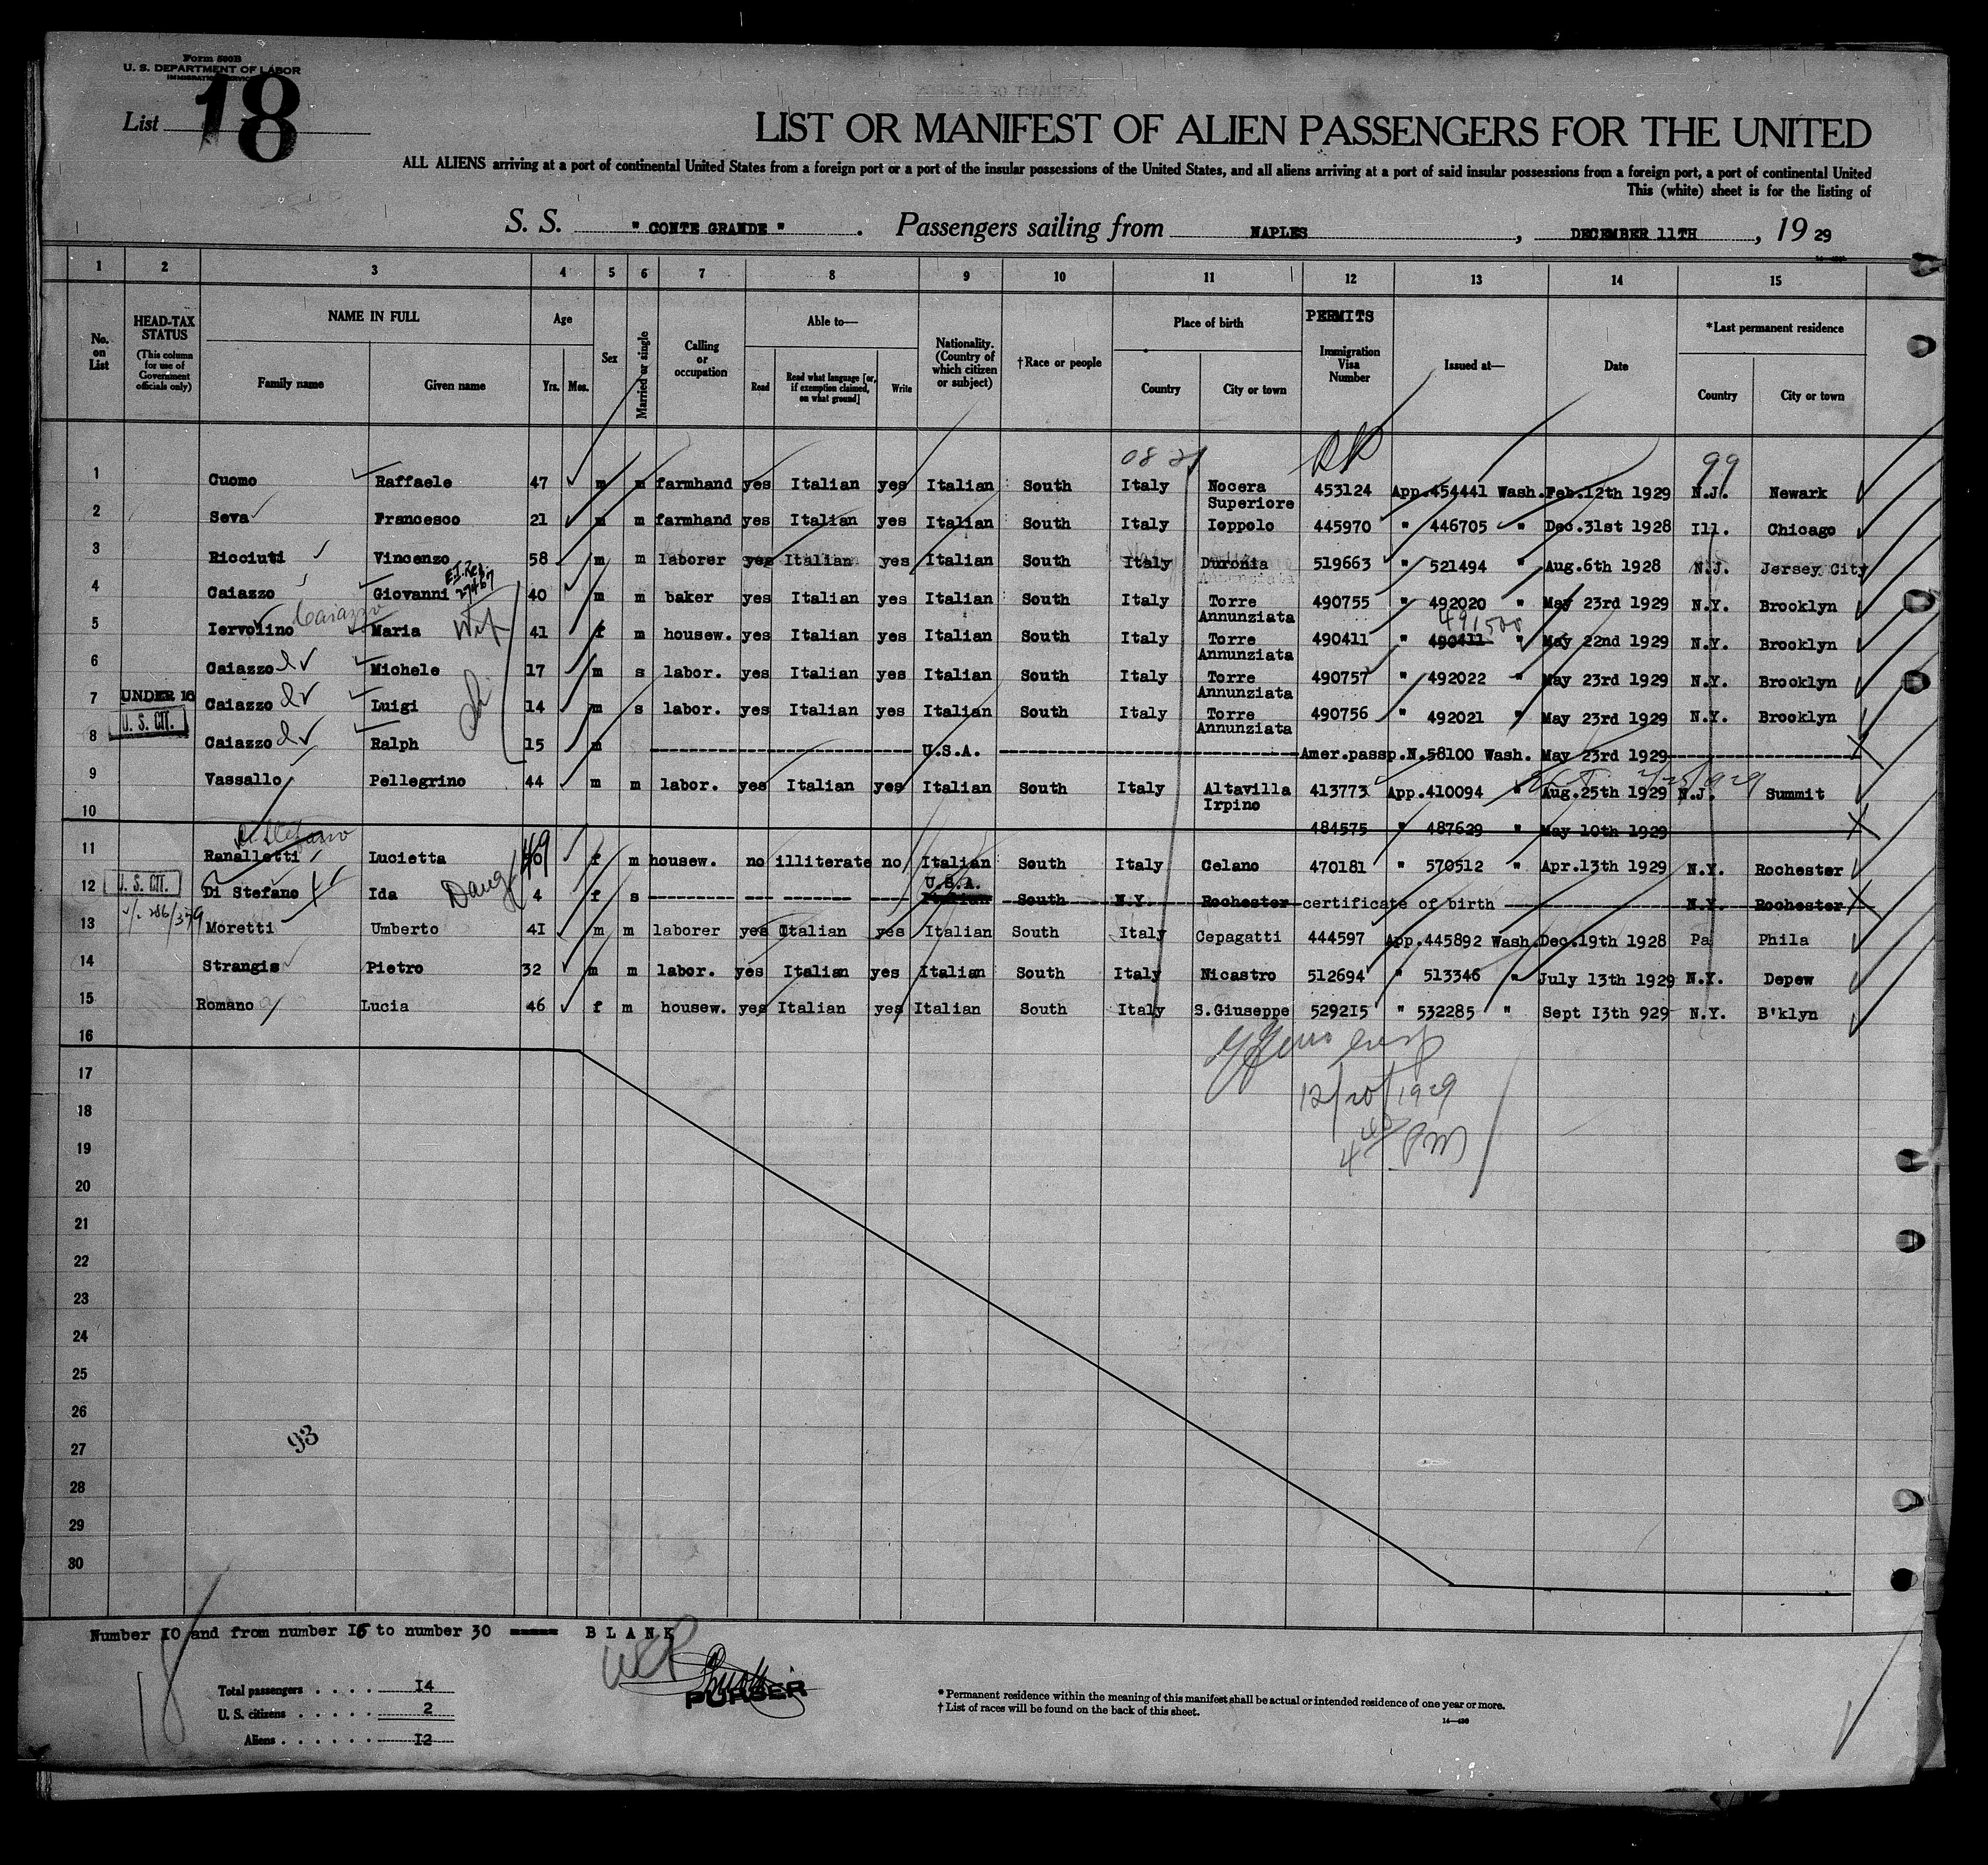 Form 500B
U. S. DEPARTMENT OF LABOR
IMMIGRATION SERVICE
List 18
LIST OR MANIFEST OF ALIEN PASSENGERS FOR THE UNITED
ALL ALIENS arriving at a port of continental United States from a foreign port or a port of the insular possessions of the United States, and all aliens arriving at a port of said insular possessions from a foreign port, a port of continental United
This (white) sheet is for the listing of
S. S. " CONTE GRANDE " . Passengers sailing from NAPLES , DECEMBER 11TH , 19 29
1 2 3 4 5 6 7 8 9 10 11 12 13 14 15
No. on List
HEAD-TAX STATUS (This column for use of Government officials only)
NAME IN FULL
Family name Given name
Age
Yrs. Mos.
Sex
Married or single
Calling or occupation
Able to—
Read Read what language [or, if exemption claimed, on what ground] Write
Nationality. (Country of which citizen or subject)
† Race or people
Place of birth
Country City or town
PERMITS
Immigration Visa Number
Issued at—
Date
*Last permanent residence
Country City or town
99
1 Cuomo Raffaele 47 m m farmhand yes Italian yes Italian South Italy Nocera Superiore 453124 App.454441 Wash. Feb.12th 1929 N.J. Newark
2 Seva Francesco 21 m m farmhand yes Italian yes Italian South Italy Ioppolo 445970 " 446705 " Dec.31st 1928 Ill. Chicago
3 Ricciuti Vincenzo 58 m m laborer yes Italian yes Italian South Italy Duronia 519663 " 521494 " Aug.6th 1928 N.J. Jersey City
4 Caiazzo Giovanni 27467 40 m m baker yes Italian yes Italian South Italy Torre Annunziata 490755 " 492020 " May 23rd 1929 N.Y. Brooklyn
5 Iervolino Caiazzo Maria Wife 41 f m housew. yes Italian yes Italian South Italy Torre Annunziata 490411 " 490411 491500 " May 22nd 1929 N.Y. Brooklyn
6 Caiazzo Michele 17 m s labor. yes Italian yes Italian South Italy Torre Annunziata 490757 " 492022 " May 23rd 1929 N.Y. Brooklyn
7 UNDER 16 Caiazzo Luigi 14 m s labor. yes Italian yes Italian South Italy Torre Annunziata 490756 " 492021 " May 23rd 1929 N.Y. Brooklyn
8 U. S. CIT. Caiazzo Ralph 15 m U.S.A. Amer.passp.N.58100 Wash. May 23rd 1929
9 Vassallo Pellegrino 44 m m labor. yes Italian yes Italian South Italy Altavilla Irpino 413773 App.410094 " Aug.25th 1929 N.J. Summit
10 484575 " 487629 " May 10th 1929
11 Ranalletti Di Stefano Lucietta 49 f m housew. no illiterate no Italian South Italy Celano 470181 " 570512 " Apr.13th 1929 N.Y. Rochester
12 U. S. CIT. Di Stefano Ida Daug 4 f s U.S.A. Italian South N.Y. Rochester certificate of birth N.Y. Rochester
13 Moretti Umberto 4I m m laborer yes Italian yes Italian South Italy Cepagatti 444597 App.445892 Wash. Dec.19th 1928 Pa Phila
14 Strangis Pietro 32 m m labor. yes Italian yes Italian South Italy Nicastro 512694 " 513346 " July 13th 1929 N.Y. Depew
15 Romano Lucia 46 f m housew. yes Italian yes Italian South Italy S.Giuseppe 5292I5 " 532285 " Sept I3th 929 N.Y. B'klyn
16
17
12/20/1929
18
19
PM
20
21
22
23
24
25
26
27
93
28
29
30
Number IO and from number I6 to number 30 BLANK
18
Total passengers . . . . I4
U. S. citizens . . . . . 2
Aliens . . . . . . I2
PURSER
* Permanent residence within the meaning of this manifest shall be actual or intended residence of one year or more.
† List of races will be found on the back of this sheet.